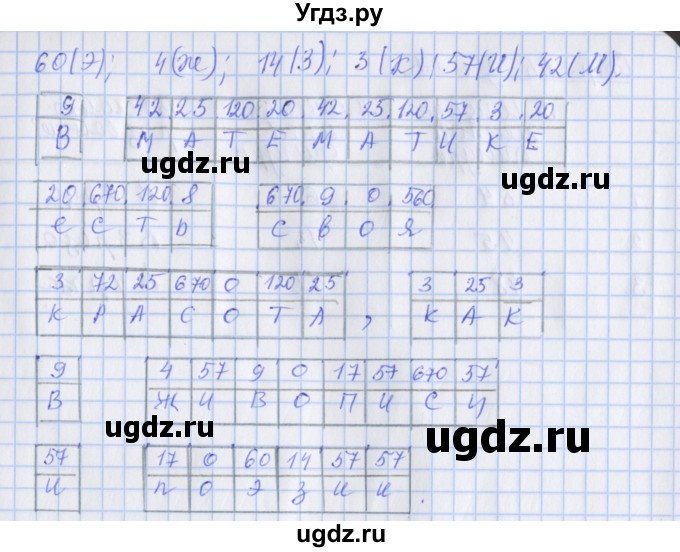 Угдз.ру
60(Э); 4(Ж); 14(З); 3(К); 57(И); 42(М).
9 42 25 120 20 42 25 120 57 3 20
В М А Т Е М А Т И К Е
20 670 120 8 670 9 0 560
Е С Т Ь С В О Я
3 72 25 670 0 120 25 3 25 3
К Р А С О Т А , К А К
9 4 57 9 0 17 57 670 57
В Ж И В О П И С И
57 17 0 60 14 57 57
И П О Э З И И .
ugdz.ru
ugdz.ru
ugdz.ru
ugdz.ru
ugdz.ru
ugdz.ru
ugdz.ru